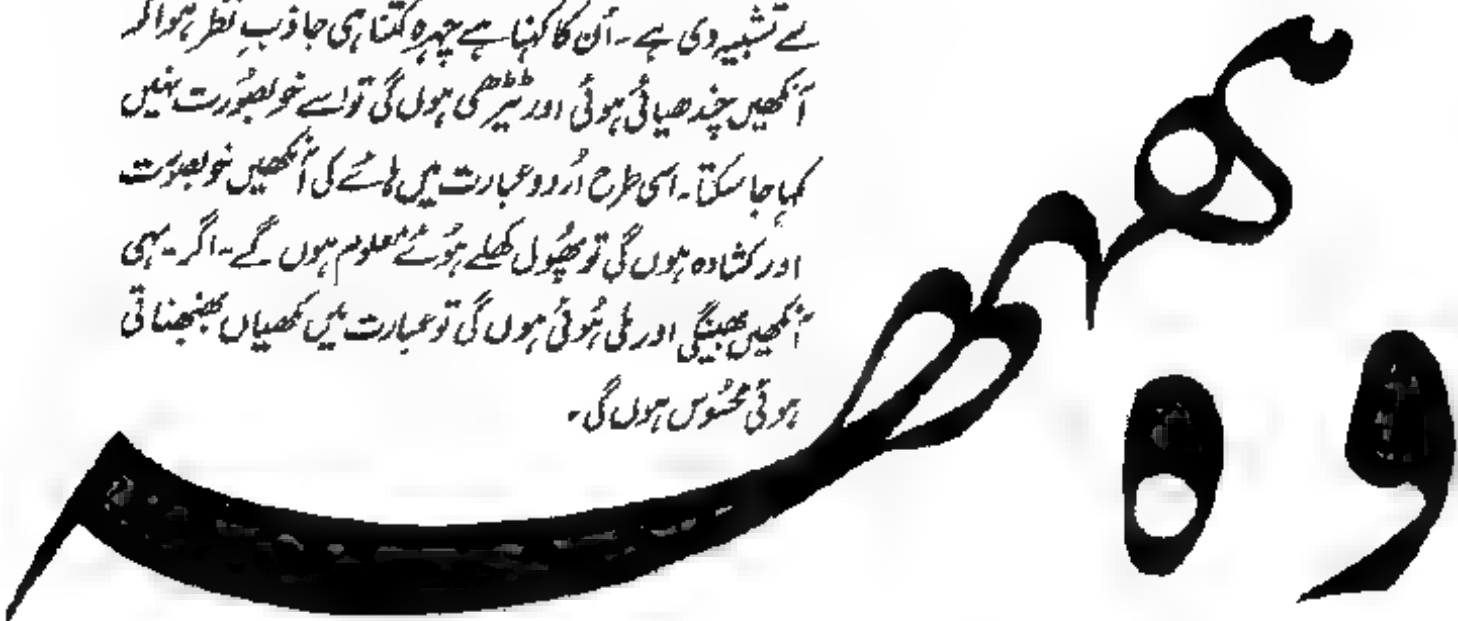 سے تشبیہ دی ہے۔ اُن کا کہنا ہے چہرہ کتنا ہی جاذبِ نظر ہو اگر
آنکھیں چندھیائی ہوئی اور ٹیڑھی ہوں گی تو اسے خوبصورت نہیں
کہا جا سکتا۔ اسی طرح اُردو عبارت میں ہائے کی آنکھیں خوبصورت
اور کشادہ ہوں گی تو پھول کھلے ہوئے معلوم ہوں گے۔ اگر یہی
آنکھیں بھینگی اور ملی ہُوئی ہوں گی تو عبارت میں مکھیاں بھنبھناتی
ہوئی محسُوس ہوں گی۔
و ہ